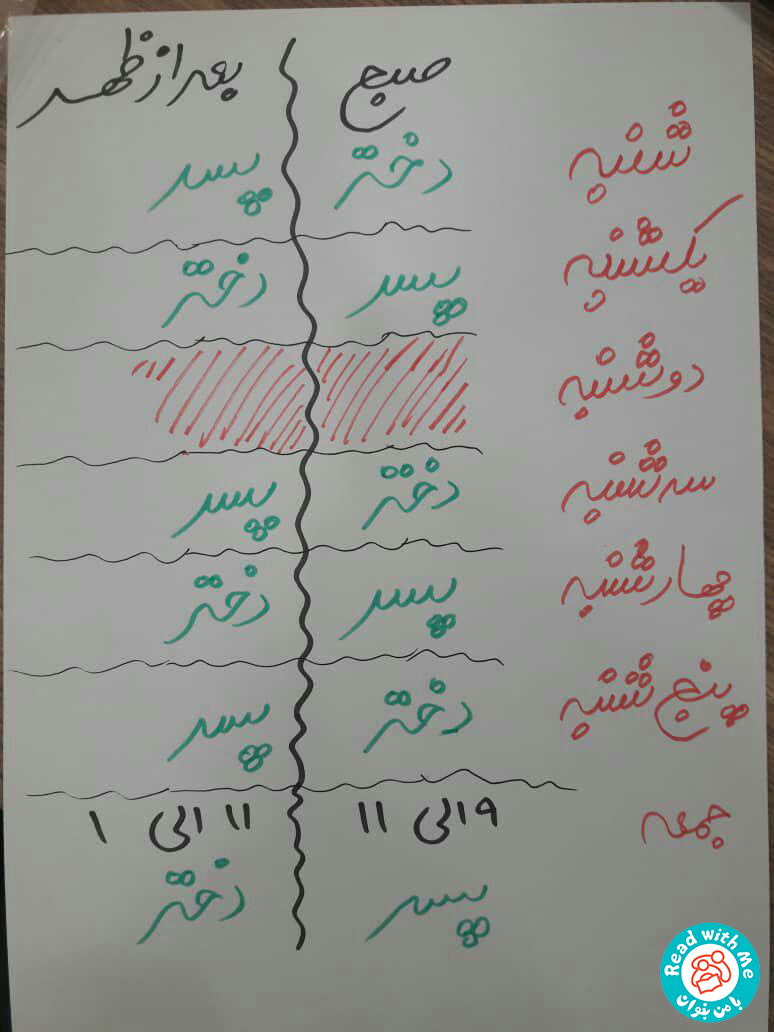 صبح بعد از ظهر
شنبه دختر پسر
یکشنبه پسر دختر
دوشنبه
سه شنبه دختر پسر
چهارشنبه پسر دختر
پنج شنبه دختر پسر
جمعه ۹ الی ۱۱ ۱۱ الی ۱
پسر دختر
Read with Me
با من بخوان